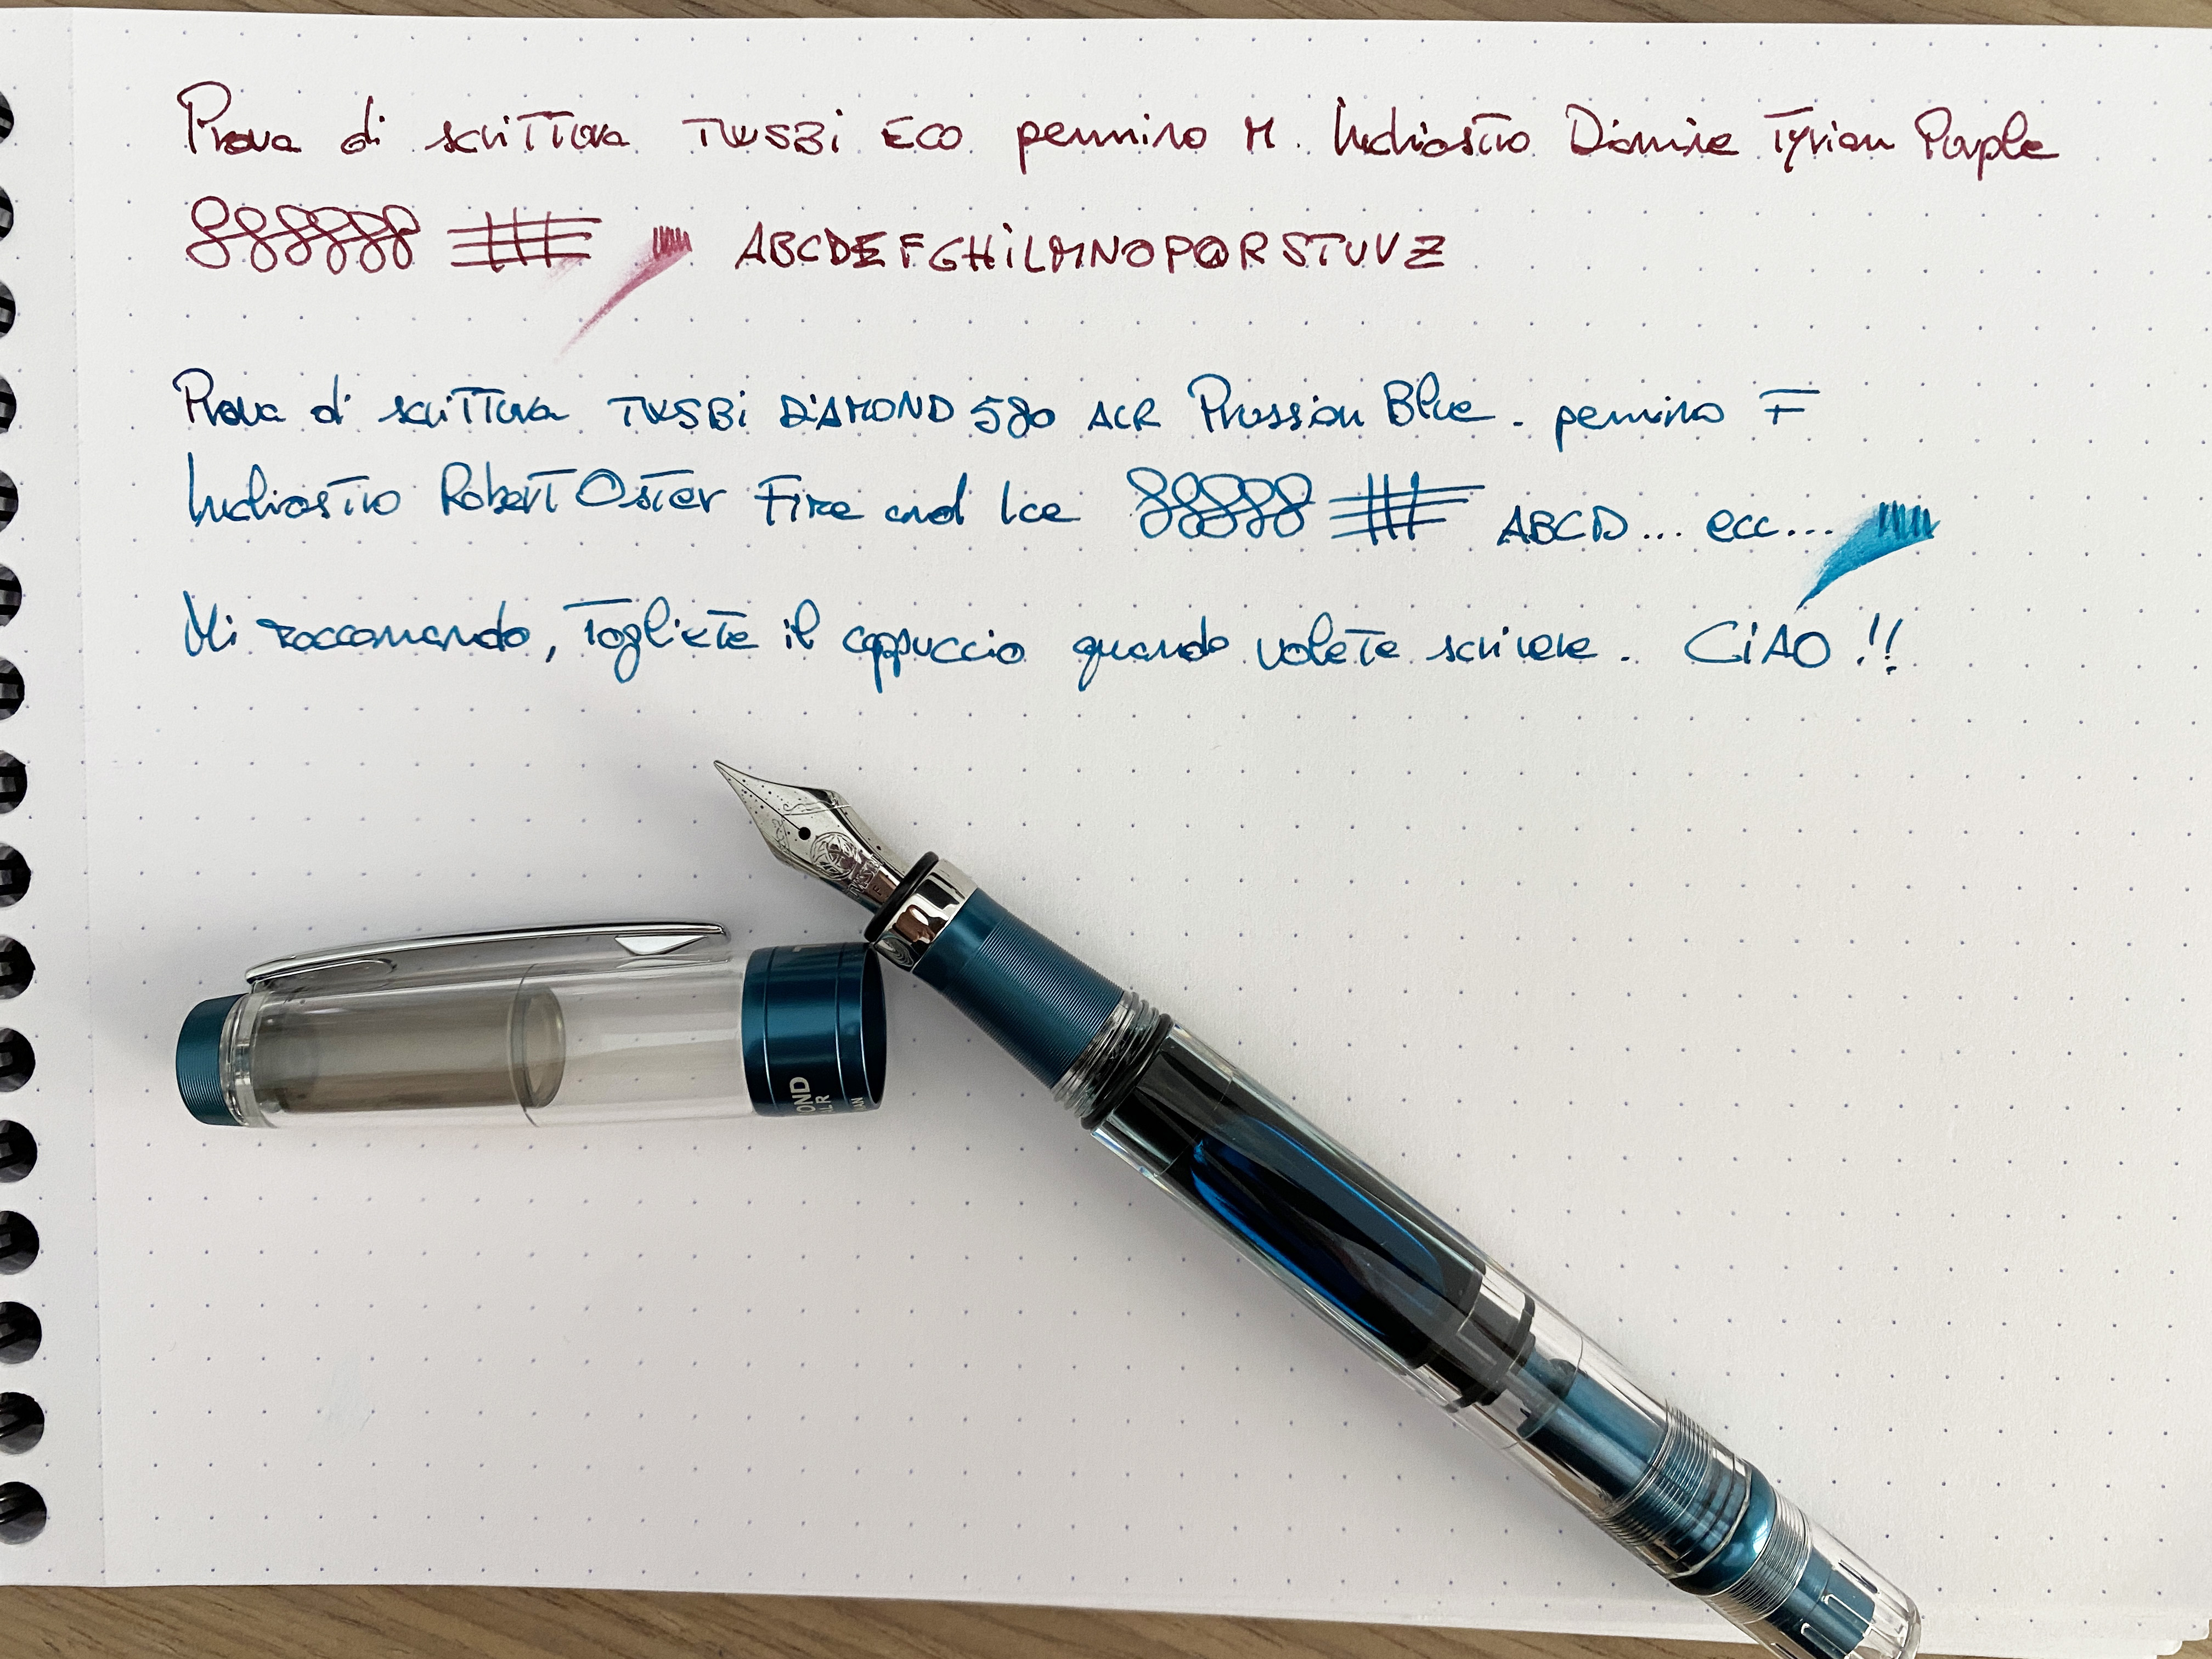 Prova di scrittura TWSBi ECO pennino M. Inchiostro Diamine Tyrian Purple
ABCDEFGHiLMNOPQRSTUVZ
Prova di scrittura TWSBi DiAMOND 580 ALR Prussian Blue. pennino F
Inchiostro Robert Oster Fire and Ice ABCD... ecc...
Mi raccomando, Togliete il cappuccio quando volete scrivere. CiAO!!
OND
ALR